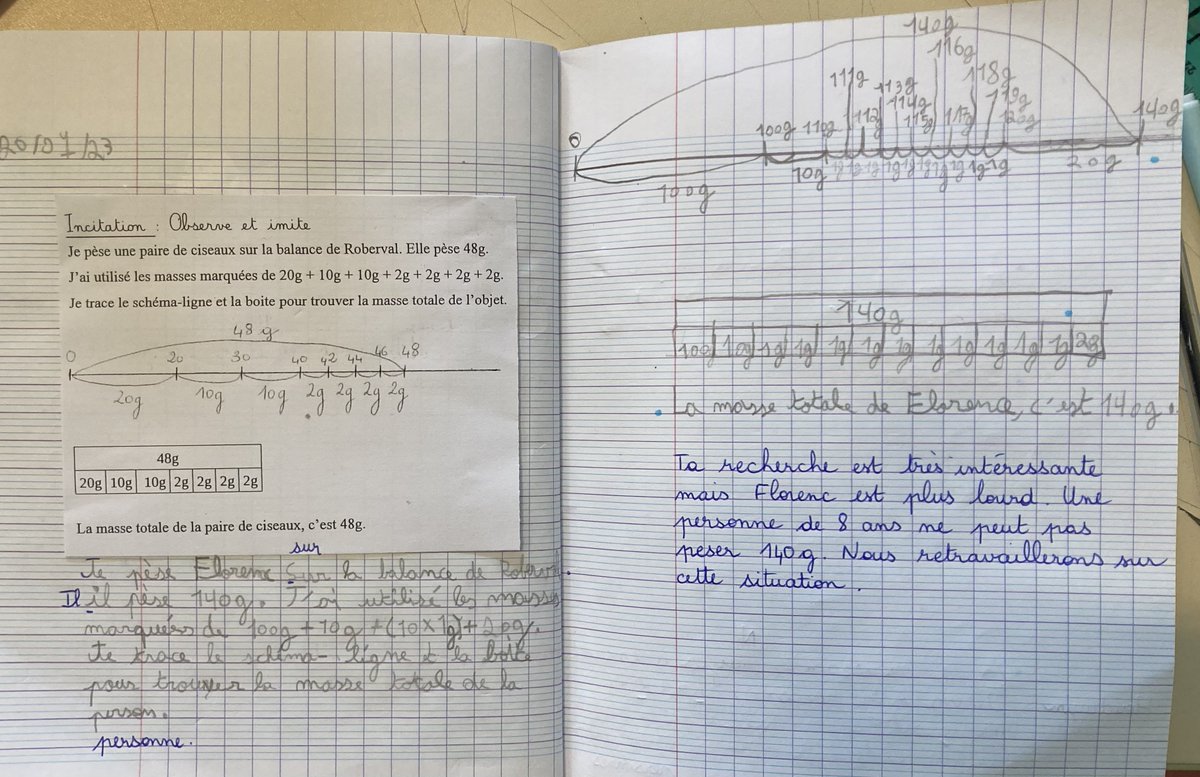 20/01/23
Incitation : Observe et imite
Je pèse une paire de ciseaux sur la balance de Roberval. Elle pèse 48g.
J'ai utilisé les masses marquées de 20g + 10g + 10g + 2g + 2g + 2g + 2g.
Je trace le schéma-ligne et la boite pour trouver la masse totale de l'objet.
48 g
0 20 30 40 42 44 46 48
20g 10g 10g 2g 2g 2g 2g
48g
20g 10g 10g 2g 2g 2g 2g
La masse totale de la paire de ciseaux, c'est 48g.
sur
Je pèse Florenc Sur la balance de Roberval.
Il il pèse 140g. J'ai utilisé les masses
marquées de 100g + 10g + (10×1g) + 20g.
Je trace le schéma-ligne et la boite
pour trouver la masse totale de la
person.
personne.
140g
0 100g 110g 111g 112g 113g 114g 115g 116g 117g 118g 119g 120g 140g
100g 10g 1g 1g 1g 1g 1g 1g 1g 1g 1g 1g 20g
140g
100 10g 1g 1g 1g 1g 1g 1g 1g 1g 1g 1g 20g
La masse totale de Florence, c'est 140g.
Ta recherche est très intéressante
mais Florenc est plus lourd. Une
personne de 8 ans ne peut pas
peser 140g. Nous retravaillerons sur
cette situation.